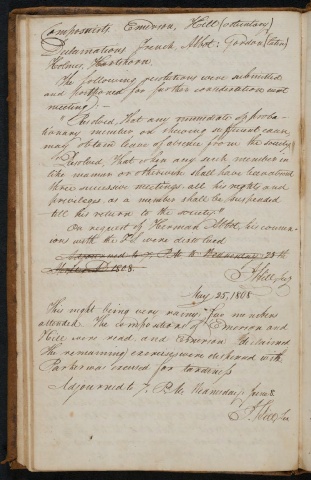 Composuists Emerson, Hill (attending)
Declamations French, Abbot: Gordon (Latin)
Holmes, Hawthorn.
The following resolutions were submitted
and postponed for further consideration next
meeting:—
"Resolved, That any immediate or proba-
tionary member on shewing sufficient cause
may obtain leave of absence from the society"
"Resolved, That when any such member in
like manner or otherwise shall have been absent
three successive meetings all his rights and
privileges as a member shall be suspended
till his return to the society."
On request of Herman Abbot, his connex-
ions with the were dissolved
Adjourned to 7 P.M. Wednesday 25th
1808.
Hill Sec
May 25, 1808
This night being very rainy few members
attended. The compositions of Emerson and
Hill were read, and Emerson declaimed
The remaining exercises were dispensed with
Parker was excused for tardiness
Adjourned to 7. P.M. Wednesday June 8.
Hill Sec